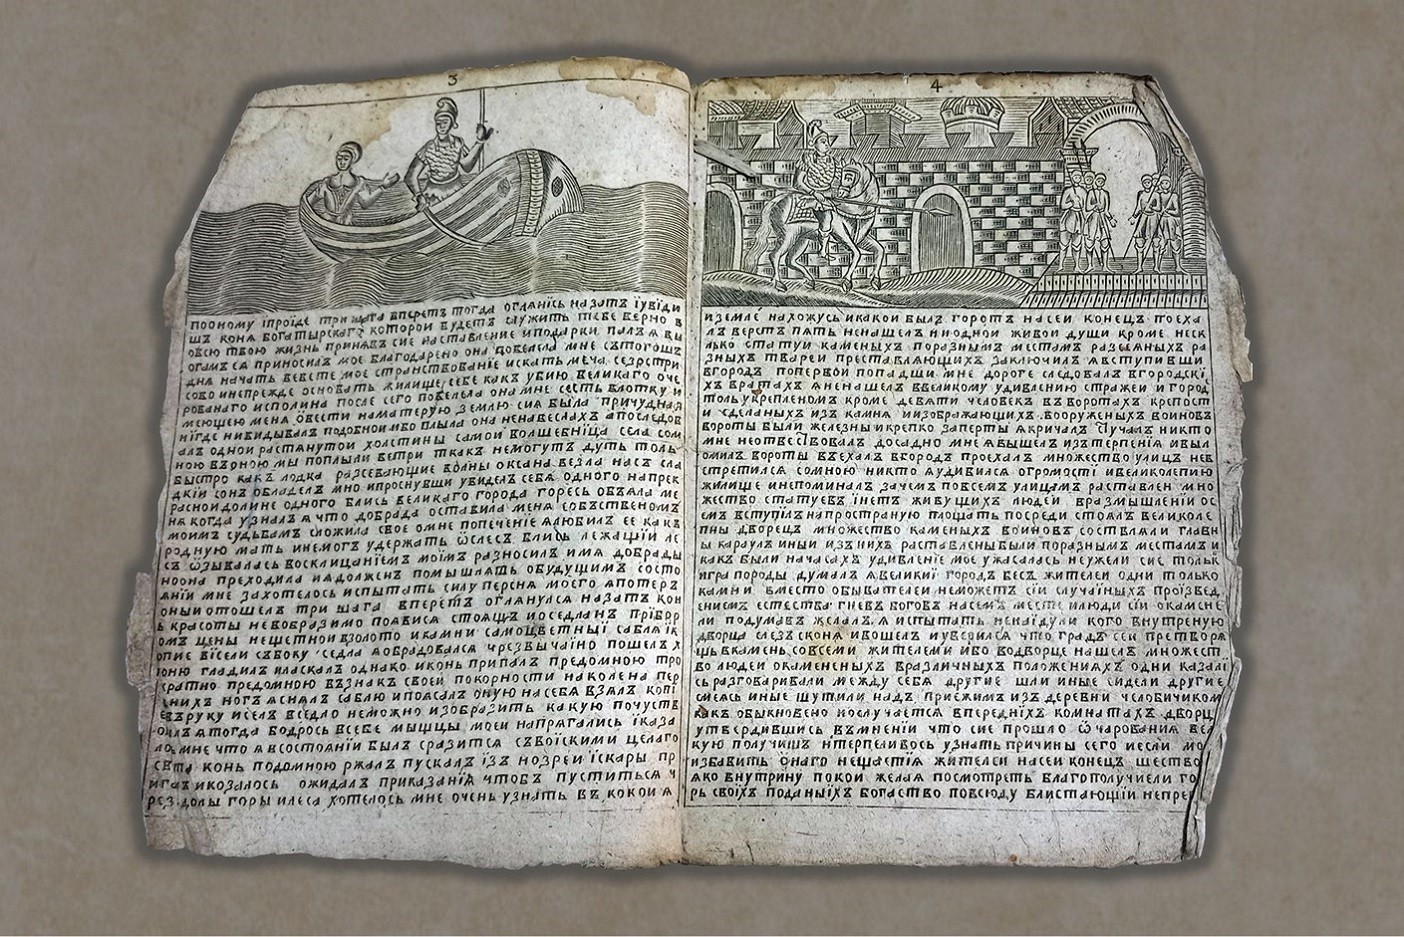 3
поѻному їпроїде три шага вперетъ тогда оглянїсь назатъ їувїди
шъ коня богатырскаго которои будетъ служить тебе верно в
овсю твою жизнь принявъ сие наставление иподарки палъ я
огамъ ся приносилъ мое благодарено она повелела мне
дня начать вевсте мое странствование искать меча
сово инепрежде основать жилище себе какъ убию великаго оче
рованаго исполина после сего повелела она мне сесть влотку и
меющею меня ѿвести наматерую землю сия была причудная
нїгде нивидывалъ подобнои ибо плыла она ненавеслахъ апоследов
алъ однои растянутои холстины самои волшебнїца села сом
ною върною мы поплыли ветри ткакъ немогутъ дуть толь
быстро какъ лодка разсевающие волны оксана везла насъ сла
дкїи сонъ обладелъ мно ипроснувши увиделъ себя одного напрек
расной долине одного блись великаго города горесь объяла ме
ня когда узналъ я что добрада оставила меня собъственомъ
моимъ судьбамъ сложила свое омне попеченїе ялюбилъ ее какъ
родную мать инемогъ удержать ѿслесъ блись лежащїй ле
съ ѿзывалась восклицанїемъ моїмъ разносилъ имя добрады
ноона преходила иядолженъ помышлять обудущимъ состо
янїи мне захотелось испытать силу персня моего япотеръ
оныи отошелъ три шага вперетъ оглянулся назатъ кон
ь красоты невобразимо появися стоящъ иоседланъ прїбор
омъ цены нещетнои взолото икамни самоцветныї сабля їк
опие вїсели събоку седла яобрадовался чрезвычаїно пошелъ х
коню гладилъ иласкалъ однако иконь припалъ предомною тро
екратно предомною възнакъ своеи покорности наколена пер
енихъ ногъ яснялъ саблю ипоясалъ оную насебя взялъ копї
евъруку иселъ вседло неможно изобразить какую почуств
оилъ ятогда бодрось всебе мышцы моеи напрягались їказа
ло мне что явсостоянїи былъ сразится съвоїскими целаго
света конь подомною ржалъ пускалъ їзъ ноздреи їскары пр
игаъ иказалось ожидалъ приказанїя чтобъ пуститься ч
рез долы горы илеса хотелось мне очень узнать въ какои я
4
иземле нахожусь икакои былъ горотъ насеи конецъ поеха
лъ верстъ пять ненашелъ ниоднои живои души кроме неск
алько статуи каменыхъ поразнымъ местамъ разеяныхъ ра
зныхъ твареи преставляющихъ заключилъ явступивши
вгородъ поперво и попадши мне дороге следовалъ вгородскї
хъ вратахъ яненашелъ ввеликому удивлению стражеи и город
толь укрепленомъ кроме девяти человекъ въворотахъ крепост
и сделаныхъ изъ камня иизображающихъ вооруженыхъ воиновъ
вороты были железны икрепко заперты якричалъ стучалъ никто
мне неответствовалъ досадно мне явышелъ изътерпенїя ивыл
омилъ вороты въехалъ вгородъ проехалъ множество улицъ нев
стретился сомною никто яудивился огромостї ивеликолепию
жилище инепоминалъ зачемъ повсемъ улицамъ раставлен мно
жество статуевъ їнетъ живущихъ людеи вразмышленїи ос
емъ вступїлъ напространую площать посреди стоялъ великоле
пны дворецъ множество каменыхъ воиновъ составляли главн
ы караулъ иныи изънихъ раставлены были поразнымъ местамъ и
какъ были начасахъ удивленїе мое ужасалась неужели сие тольк
игра породы думалъ явеликиї городъ бесъ жителеи одни только
камни вместо обывателеи неможетъ сїи случаїныхъ проїзвед
ениемъ естества гневъ боговъ насемъ месте илюди сїи окамсне
ли подумавъ желалъ я испытать ненаїдули кого внутреную
дворца слезъ сконя ивошелъ иуверился что градъ сеи претворя
щъ вкамень совсеми жителеми ибо водворце нашелъ множест
во людеи окамененыхъ вразлїчныхъ положенияхъ одни казалї
сь разговаривали между себя другие шли иные сидели другие
смеясь иные шутили надъ приежимъ изъ деревни челобичиком
какъ обыкновено ислучается впереднїхъ комнатахъ дворц
утвердившись въмненїи что сие прошло ѿ чарования вел
кую получишъ нтерпеливось узнать причины сего иесли мо
избавить ѿнаго нещастїя жителеи насеи конецъ шество
яко внутрину покои желая посмотреть благополучиели го
рь своїхъ поданыїхъ богаство повсюду блистающїи непре